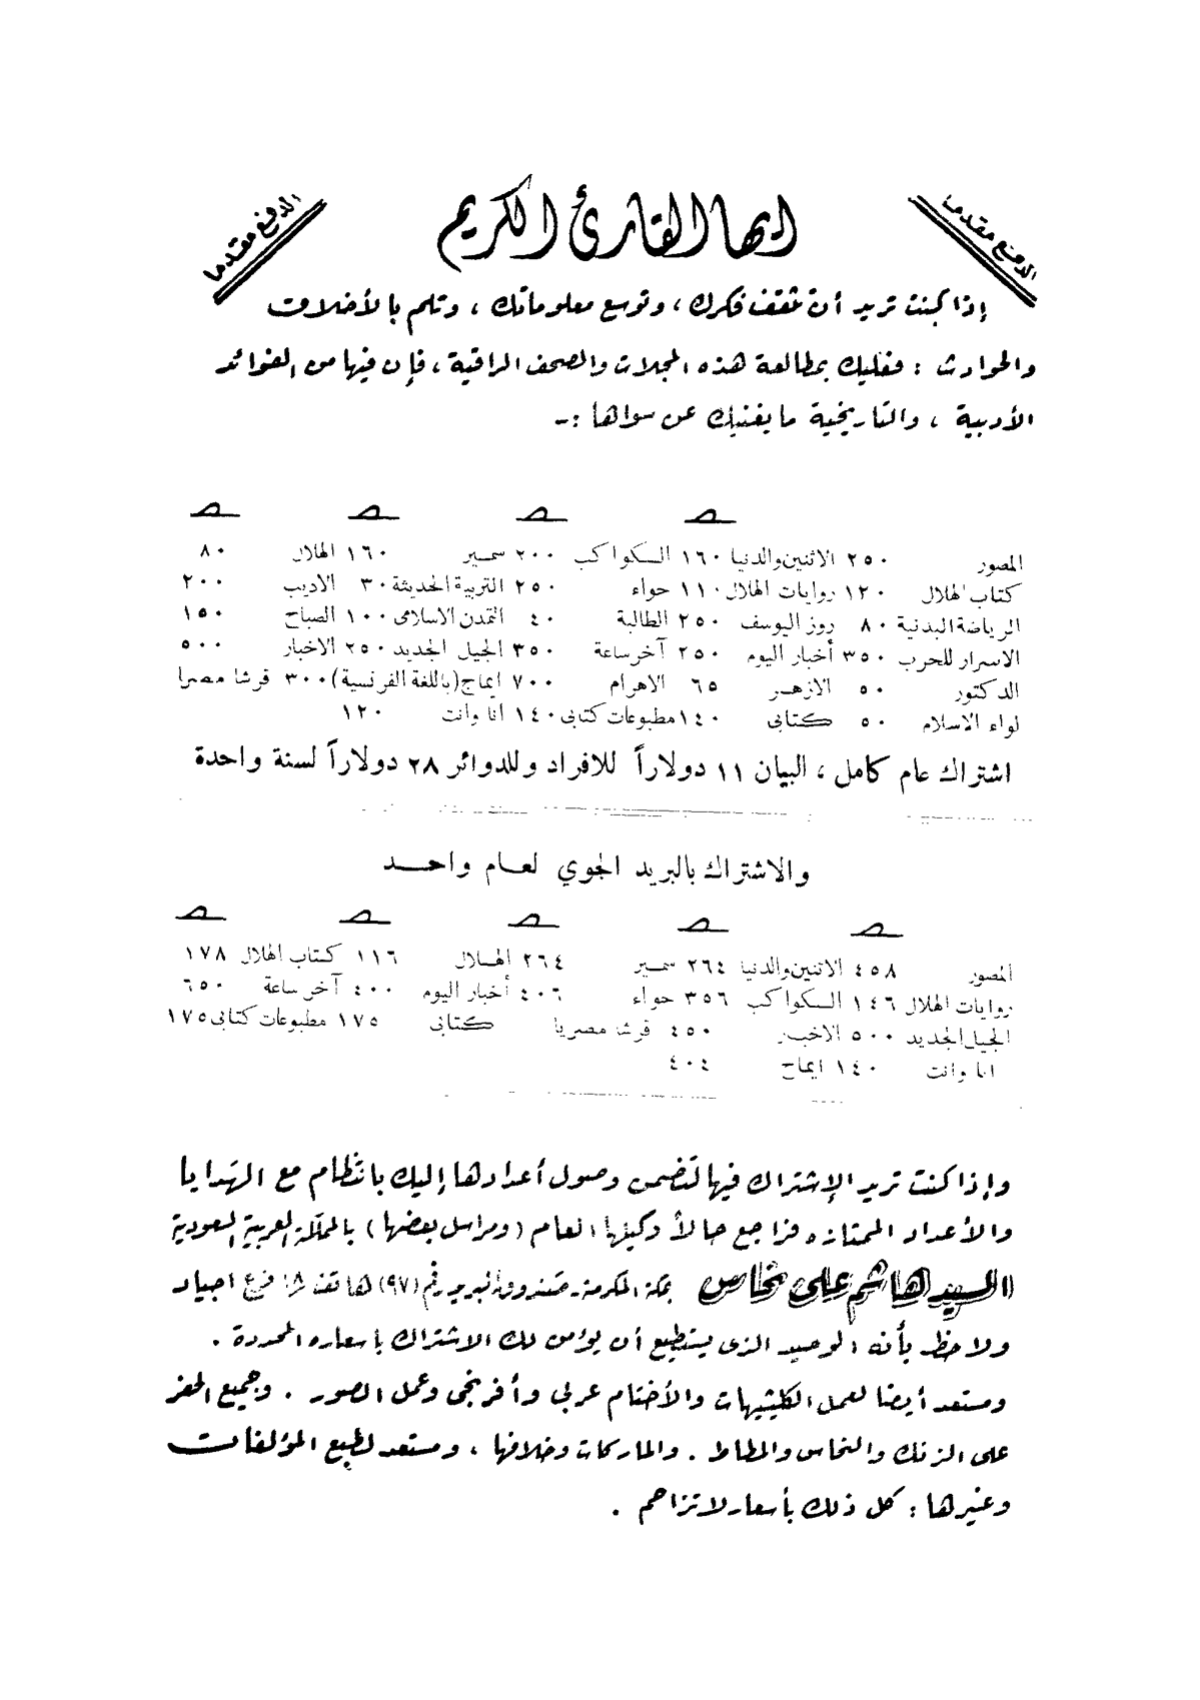 الدفع مقدما
ايها القارئ الكريم
الدفع مقدما
إذا كنت تريد أن تثقف فكرك ، وتوسع معلوماتك ، وتلم بالأخلاق
والحوادث : فعليك بمطالعة هذه المجلات والصحف الراقية ، فإن فيها من الفوائد
الأدبية ، والتاريخية ما يغنيك عن سواها :-
المصور ٢٥٠ الاثنين والدنيا ١٦٠ الكواكب ٢٠٠ سمير ١٦٠ الهلال ٨٠
كتاب الهلال ١٢٠ روايات الهلال ١١٠ حواء ٢٥٠ التربية الحديثة ٣٠ الاديب ٢٠٠
الرياضة البدنية ٨٠ روز اليوسف ٢٥٠ الطالبة ٤٠ التمدن الاسلامى ١٠٠ الصباح ١٥٠
الاسرار للحرب ٣٥٠ أخبار اليوم ٢٥٠ آخر ساعة ٣٥٠ الجيل الجديد ٢٥٠ الاخبار ٥٠٠
الدكتور ٥٠ الازهر ٦٥ الاهرام ٧٠٠ ايماج (باللغة الفرنسية) ٣٠٠ قرشا مصرا
لواء الاسلام ٥٠ كتابى ١٤٠ مطبوعات كتابى ١٤٠ انا وانت ١٢٠
اشتراك عام كامل ، البيان ١١ دولاراً للافراد وللدوائر ٢٨ دولاراً لسنة واحدة
والاشتراك بالبريد الجوي لعام واحد
المصور ٤٥٨ الاثنين والدنيا ٢٦٤ سمير ٢٦٤ الهلال ١١٦ كتاب الهلال ١٧٨
روايات الهلال ١٤٦ الكواكب ٣٥٦ حواء ٤٠٦ أخبار اليوم ٤٠٠ آخر ساعة ٦٥٠
الجيل الجديد ٥٠٠ الاخبار ٤٥٠ قرشا مصريا كتابى ١٧٥ مطبوعات كتابى ١٧٥
انا وانت ١٤٠ ايماج ٤٠٤
وإذا كنت تريد الإشتراك فيها لتضمن وصول أعدادها إليك بانتظام مع الهدايا
والأعداد الممتازه فراجع حالاً وكيلها العام (ومراسل بعضها) بالمملكة العربية السعودية
السيد هاشم على نحاس بمكة المكرمة - صندوق البريد رقم (٩٧) هاتف ١٨ فرع اجياد
ولاحظ بأنه الوحيد الذى يستطيع أن يؤمن لك الاشتراك بأسعاره المحددة .
ومستعد أيضا لعمل الكليشيهات والأختام عربى وأفرنجى وعمل الصور . وجميع الحفر
على الزنك والنحاس والمطاط . والماركات وخلافها ، ومستعد لطبع المؤلفات
وغيرها : كل ذلك بأسعار لا تزاحم .